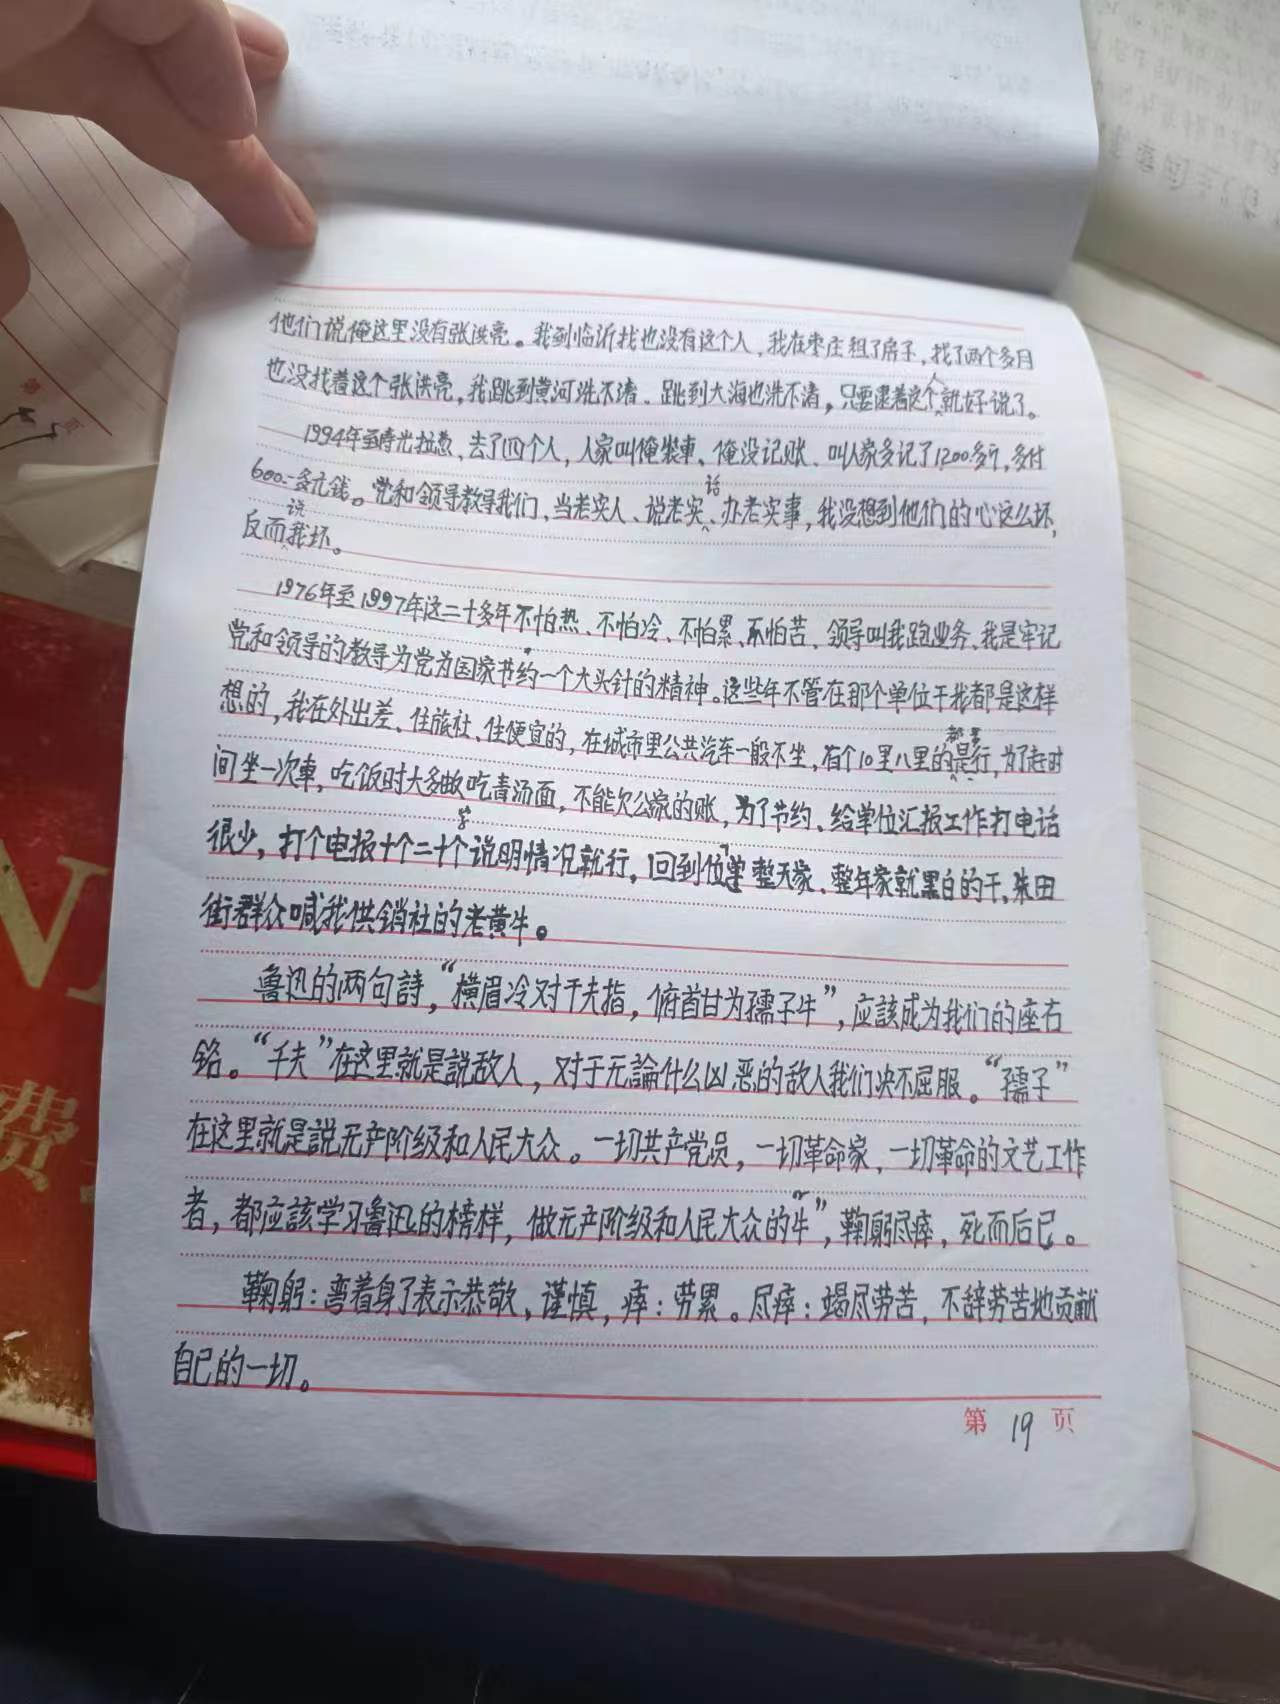 他们说俺这里没有张洪亮。我到临沂找也没有这个人，我在枣庄租了房子，找了两个多月
也没找着这个张洪亮，我跳到黄河洗不清、跳到大海也洗不清，只要逮着这个人就好说了。
1994年至寿光拉葱、去了四个人，人家叫俺装車、俺没记账、叫人家多记了1200多斤，多付
600-多元钱。党和领导教导我们、当老实人、说老实话、办老实事，我没想到他们的心这么坏，
反而说我坏。
1976年至1997年这二十多年不怕热、不怕冷、不怕累、不怕苦、领导叫我跑业务、我是牢记
党和领导的教导为党为国家节约一个大头针的精神。这些年不管在那个单位干我都是这样
想的，我在外出差、住旅社、住便宜的，在城市里公共汽车一般不坐，有个10里八里的都是步行，为了赶时
间坐一次車，吃饭时大多数吃青汤面，不能欠公家的账，为了节约、给单位汇报工作打电话
很少，打个电报十个二十个字说明情况就行，回到单位整天家、整年家就黑白的干，朱田
街群众喊我供销社的老黄牛。
鲁迅的两句詩，“横眉冷对千夫指，俯首甘为孺子牛”，应該成为我们的座右
铭。“千夫”在这里就是說敌人，对于无論什么凶恶的敌人我们决不屈服。“孺子”
在这里就是說无产阶级和人民大众。一切共产党员，一切革命家，一切革命的文艺工作
者，都应該学习鲁迅的榜样，做无产阶级和人民大众的“牛”，鞠躬尽瘁，死而后已。
鞠躬：弯着身子表示恭敬、谨慎，瘁：劳累。尽瘁：竭尽劳苦，不辞劳苦地贡献
自己的一切。
第 19 页